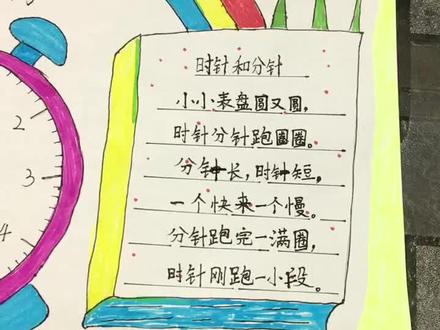 时针和分针
小小表盘圆又圆,
时针分针跑圈圈。
分针长,时针短,
一个快来一个慢。
分针跑完一满圈,
时针刚跑一小段。
2
3
4